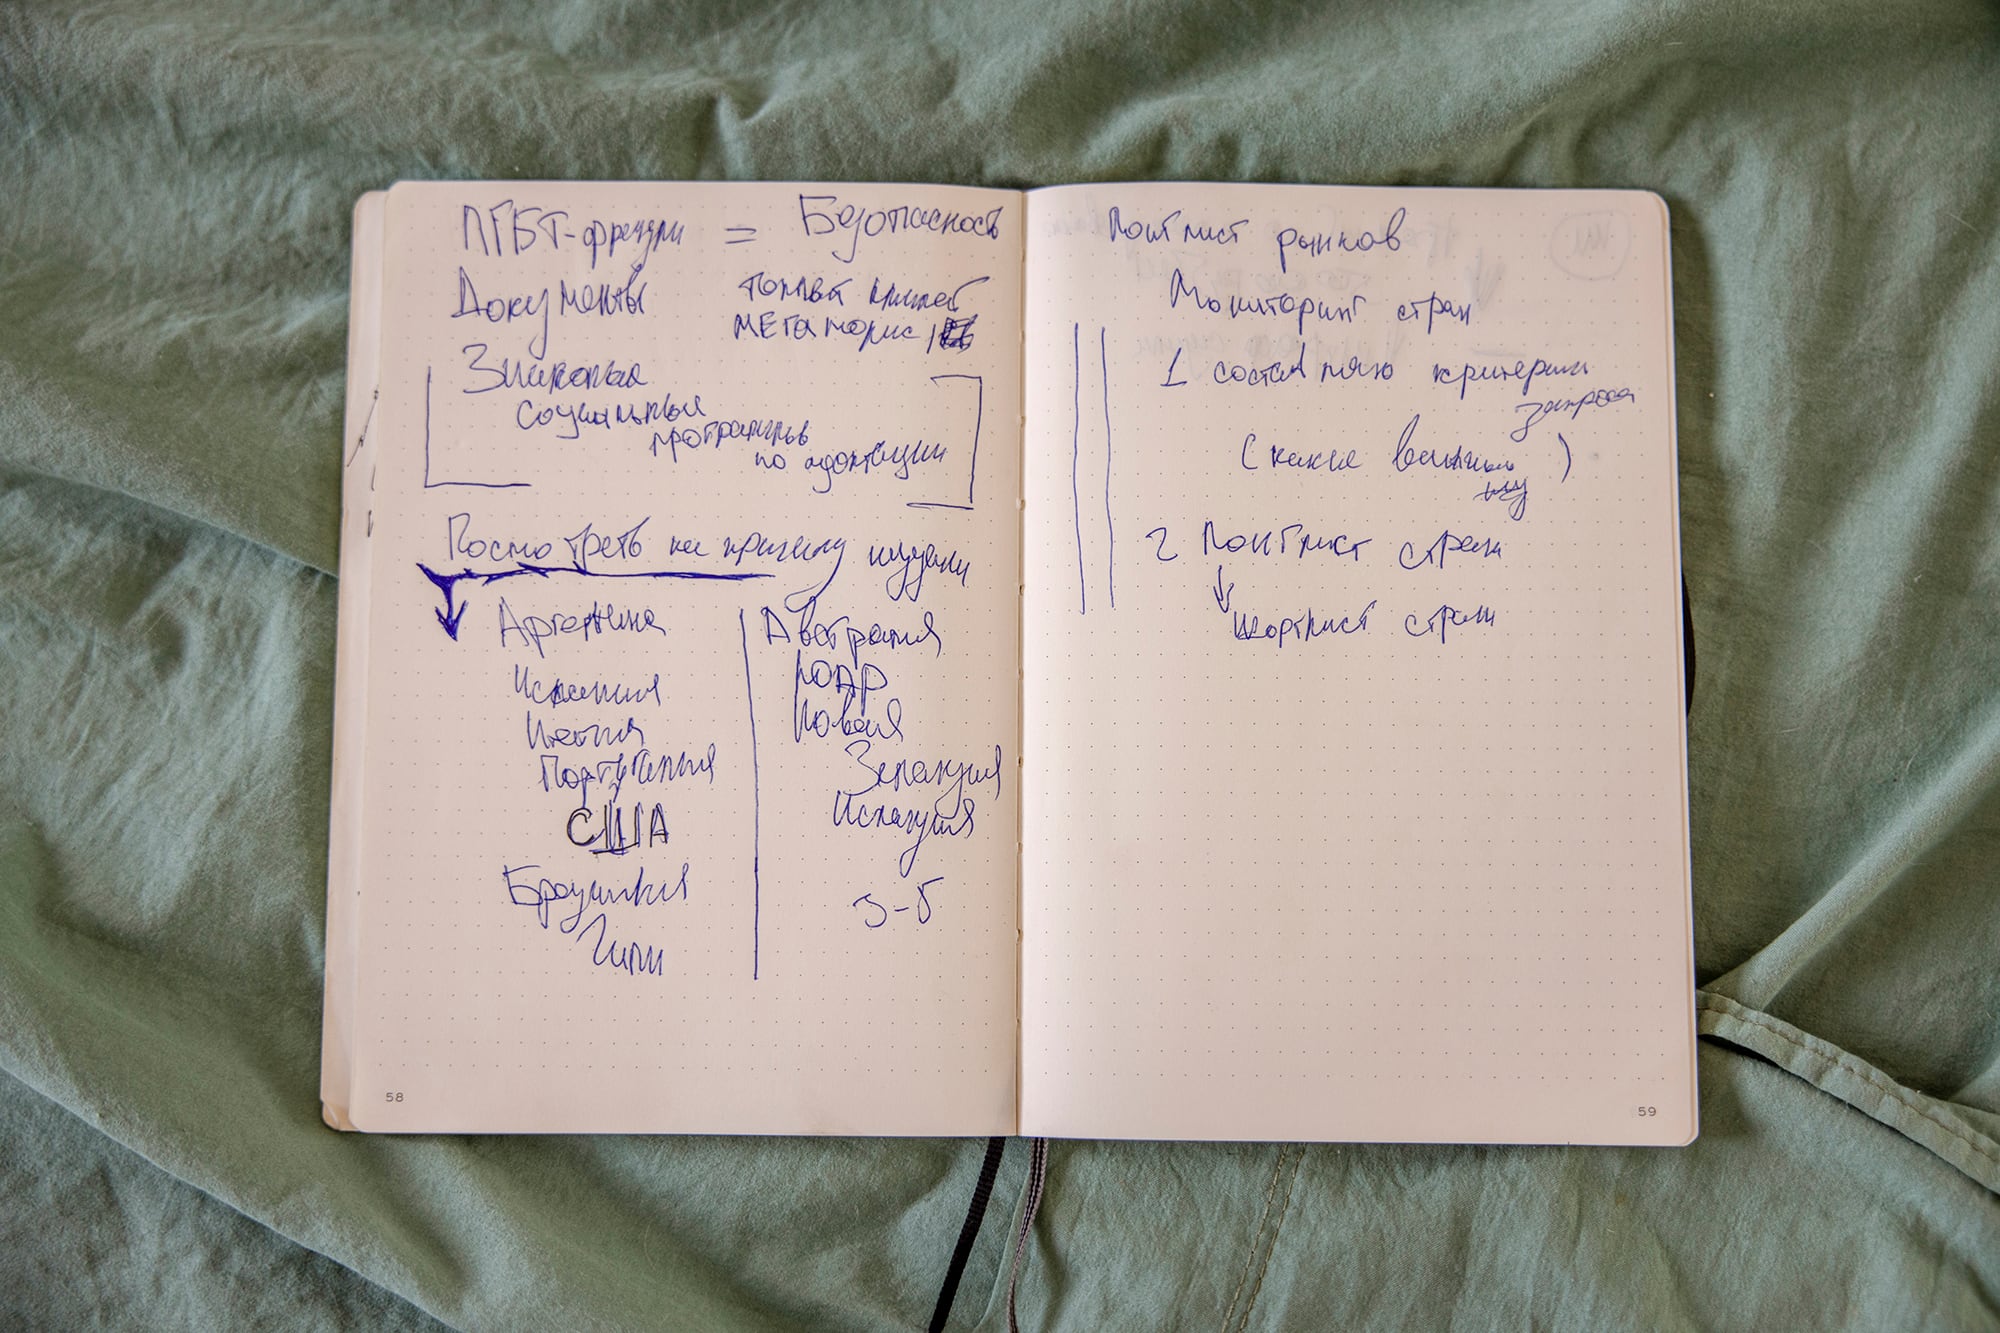 ЛГБТ-френдли = Безопасность
Документы
мегаполис
Знакомые
социальные
программы
по адаптации
Посмотреть на
Аргентина
Испания
Италия
Португалия
США
Бразилия
Чили
Австралия
ЮАР
Новая
Зеландия
Исландия
3-5
58
Лонглист рынков
Мониторинг стран
1 составляю критерии
запроса
(какие важны)
2 Лонглист стран
↓
Шортлист стран
59